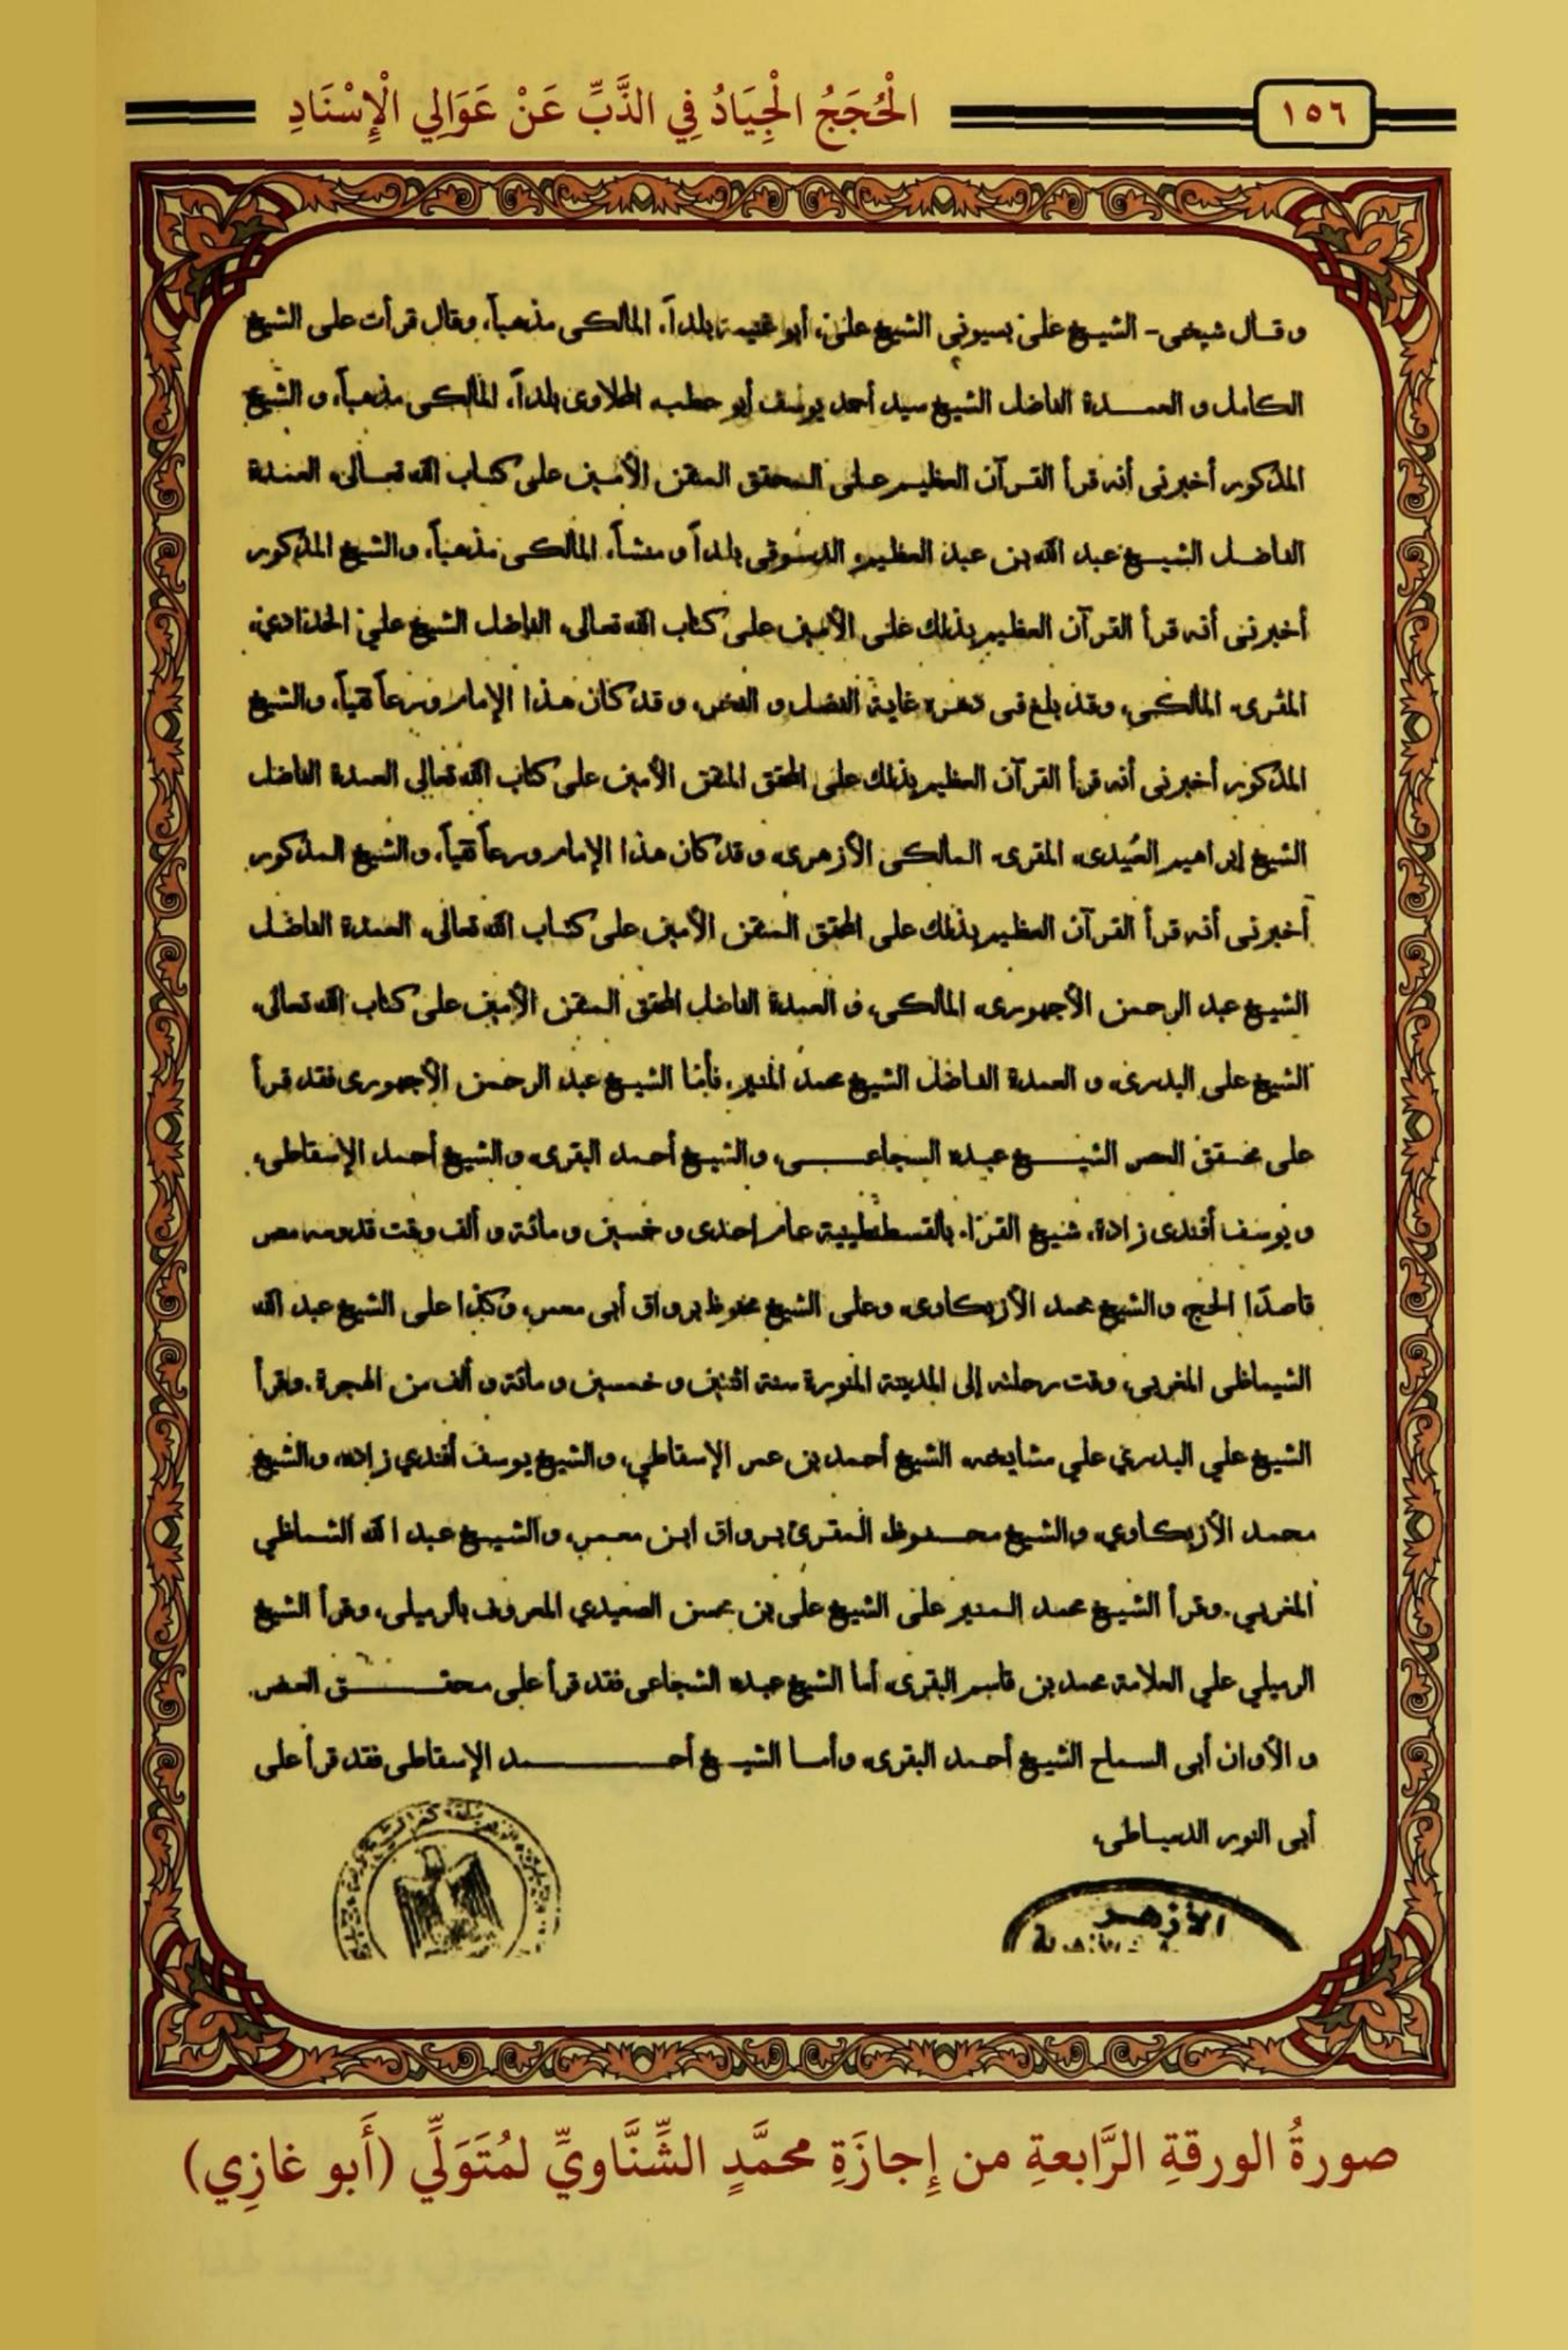 الْحُجَجُ الْجِيَادُ فِي الذَّبِّ عَنْ عَوَالِي الْإِسْنَادِ
١٥٦
وقال شيخى - الشيخ على بسيونى الشيخ على، أبو غنيمة بلداً، المالكى مذهباً، وقال قرأت على الشيخ
الكامل و العمدة الفاضل الشيخ سيد أحمد يوسف أبو حطب، المحلاوى بلداً، المالكى مذهباً، و الشيخ
المذكور أخبرنى أنه قرأ القرآن العظيم على المحقق المتقن الأمين على كتاب الله تعالى، العمدة
الفاضل الشيخ عبد الله بن عبد العظيم الدسوقى بلداً و منشأ، المالكى مذهباً، والشيخ المذكور
أخبرنى أنه قرأ القرآن العظيم بذلك على الأمين على كتاب الله تعالى، الفاضل الشيخ علي الحدادي،
المقرى، المالكى، وقد بلغ فى دهره غاية الفضل و الفخر، و قد كان هذا الإمام ورعاً تقياً، والشيخ
المذكور أخبرنى أنه قرأ القرآن العظيم بذلك على المحقق المتقن الأمين على كتاب الله تعالى العمدة الفاضل
الشيخ إبراهيم العُبيدى، المقرى، المالكى الأزهرى، و قد كان هذا الإمام ورعاً تقياً، والشيخ المذكور
أخبرنى أنه قرأ القرآن العظيم بذلك على المحقق المتقن الأمين على كتاب الله تعالى، العمدة الفاضل
الشيخ عبد الرحمن الأجهورى، المالكى، و العمدة الفاضل المحقق المتقن الأمين على كتاب الله تعالى،
الشيخ على البدرى، و العمدة الفاضل الشيخ محمد المنير، فأما الشيخ عبد الرحمن الأجهورى فقد قرأ
على محقق العصر الشيخ عبده السجاعى، والشيخ أحمد البقرى، والشيخ أحمد الإسقاطى،
و يوسف أفندى زاده، شيخ القرّاء بالقسطنطينية عام إحدى و خمسين و مائة و ألف وقت قدومه مصر
قاصدًا الحج، والشيخ محمد الأزبكاوى، وعلى الشيخ محفوظ برواق أبى معمر، وكذا على الشيخ عبد الله
الشماظى المغربى، وقت رحلته إلى المدينة المنورة سنة اثنين و خمسين و مائة و ألف من الهجرة. وقرأ
الشيخ علي البدري علي مشايخه الشيخ أحمد بن عمر الإسقاطي، والشيخ يوسف أفندي زاده، والشيخ
محمد الأزبكاوي، والشيخ محفوظ المقرئ برواق ابن معمر، والشيخ عبد الله الشماظي
المغربي. وقرأ الشيخ محمد المنير على الشيخ على بن محسن الصعيدي المعروف بالرميلى، وقرأ الشيخ
الرميلي علي العلامة محمد بن قاسم البقرى، أما الشيخ عبده السجاعى فقد قرأ على محقق العصر
و الأوان أبى السماح الشيخ أحمد البقرى، وأما الشيخ أحمد الإسقاطى فقد قرأ على
أبى النور الدمياطى،
الأزهر
صورةُ الورقةِ الرَّابعةِ من إِجازَةِ محمَّدٍ الشِّنَّاويِّ لمُتَوَلِّي (أَبو غازِي)